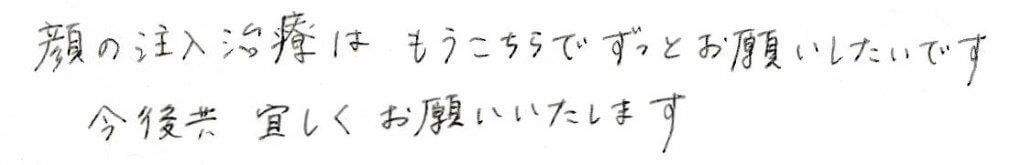 顔の注入治療は もうこちらでずっとお願いしたいです
今後共 宜しくお願いいたします